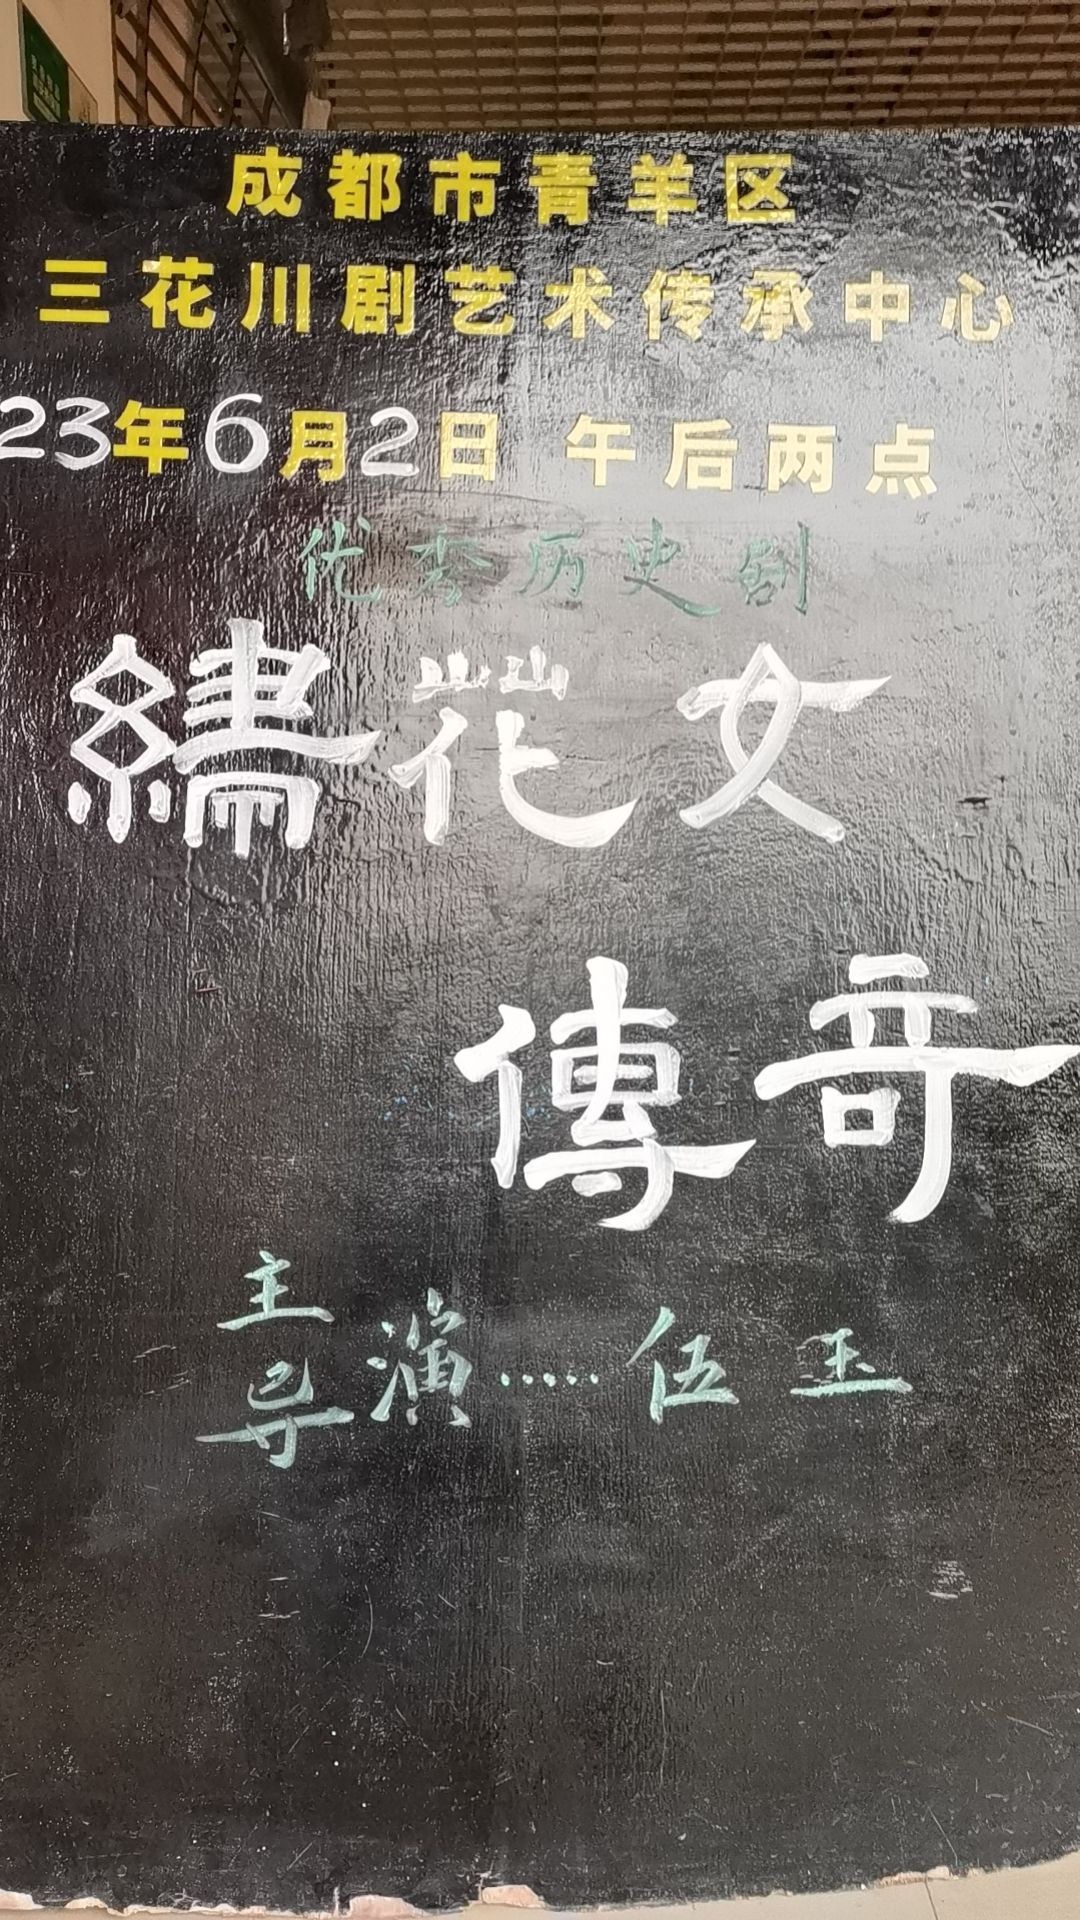 成都市青羊区
三花川剧艺术传承中心
23年6月2日 午后两点
优秀历史剧
繡花女
傳奇
主
导演……伍玉